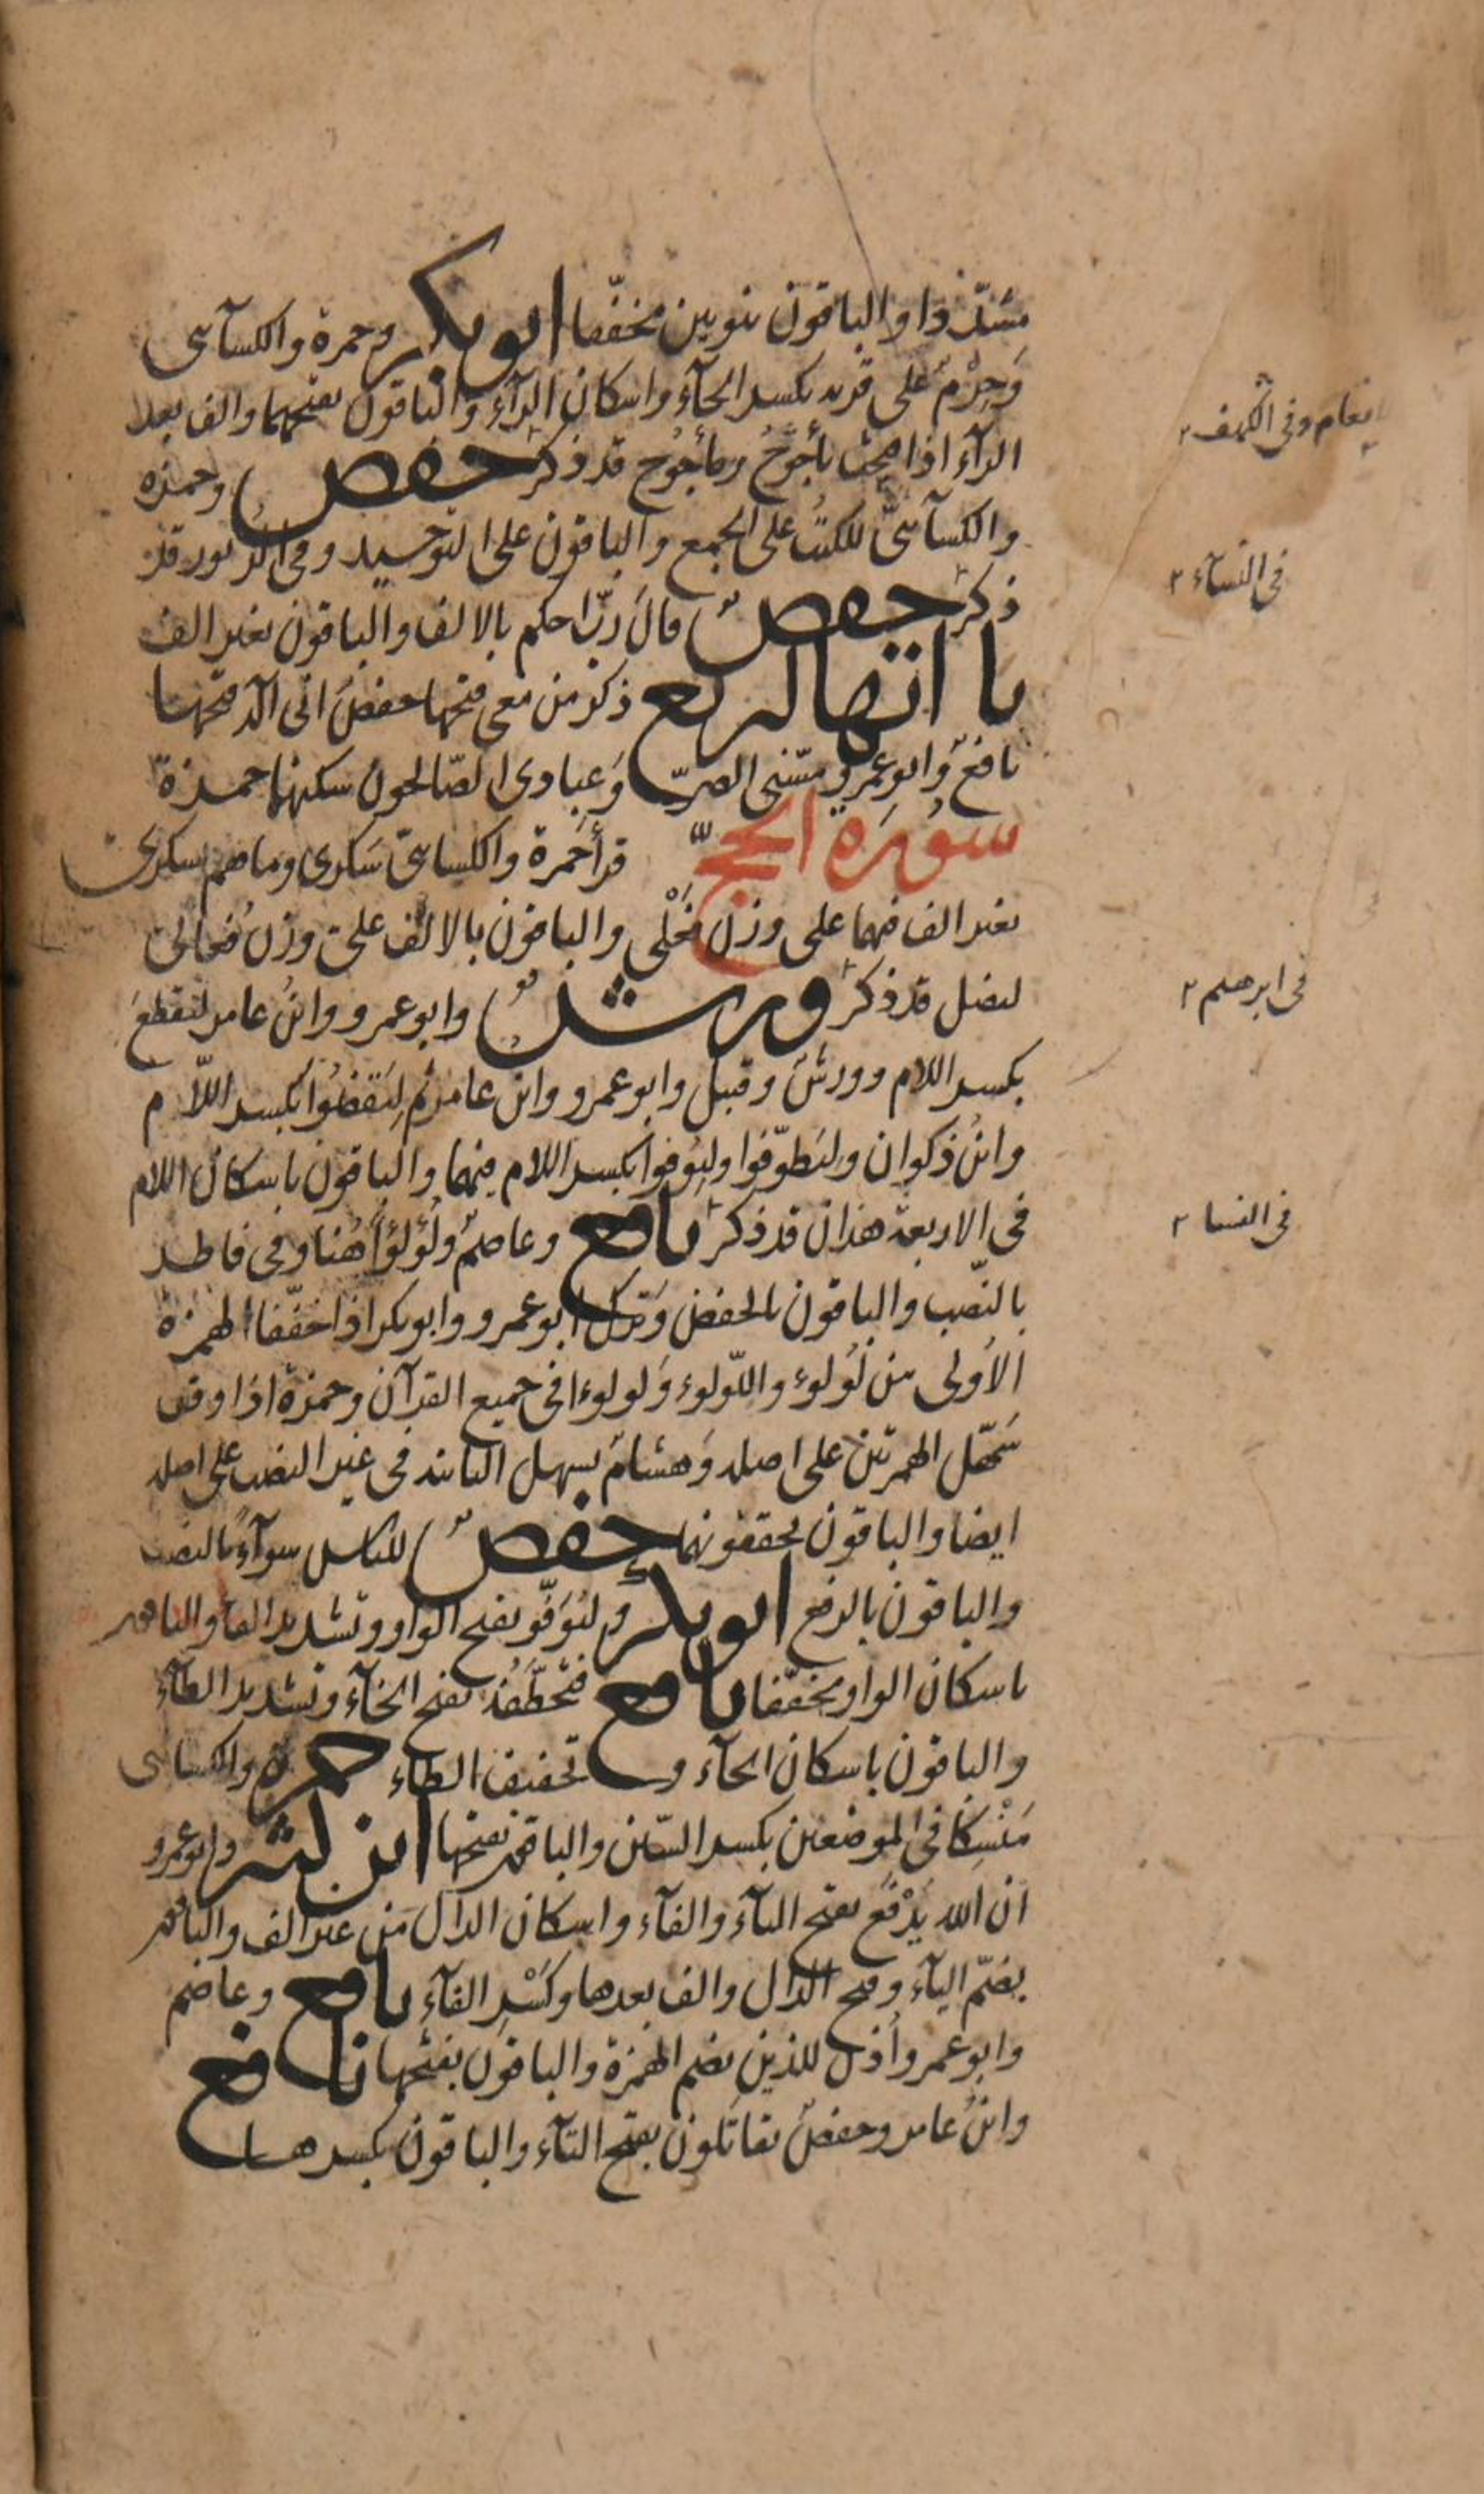 مشدّدا والباقون بنونين مخففّا ابو بكر وحمزة والكسآئى
وَحِرْمٌ على قريه بكسر الحآء واسكان الرآء والباقون بفتحهما والف بعد
الرآء اذا فتحت يأجوج ومأجُوج قد ذكر حفص وحمزه
والكسآئىّ للكتُب على الجمع والباقون على التوحيد وفى الزبور قد
ذكر حفصٌ قالَ ربّ احكم بالالف والباقون بغير الف
يا اتها اربع ذكر من معى فتحها حفصٌ انّى اله فتحها
نافعٌ وابو عمرٍو مسّنى الضرّ وَعبادى الصّالحون سكنها حمزة
سورة الحجّ قرأ حَمزة والكسائىّ سَكرى وما هم بسكرى
بغير الف فيهما على وزن فَعْلى والباقون بالالف على وزن فُعالى
ليضل قد ذكر ورشٌ وابو عمرو وابنُ عامر ليَقطعَ
بكسر اللام وورشٌ وقنبل وابو عمرو وابن عامر ثم لِيَقضُوا بكسر اللّام
وابنُ ذكوان وليَطوّفوا وليُوفوا بكسر اللام فيهما والباقون باسكان اللام
فى الاربعة هذان قد ذكر نافع وعاصمٌ ولُؤلؤاً هُنا وفى فاطر
بالنّصب والباقون بالخفض وَترك ابو عمرو وابو بكر اذا خفّفا الهمزة
الأولى من لُولوء واللّولوء وَلولوءا فى جميع القرآن وحمزة اذا وقف
سَهّل الهمزتين على اصله وَهشامٌ يسهل الثانيه فى غير النصب على اصله
ايضا والباقون يحققونهما حفصٌ للناس سوآءً بالنصب
والباقون بالرفع ابو بكر وليُوَفّو بفتح الواو وتشديد الفا والباقون
باسكان الواو مخففّا نافع فتَخَطَّفُه بفتح الخآء وتشديد الطآء
والباقون باسكان الخآء وتخفيف الطاء حمزة والكسائى
مَنْسِكًا فى الموضعين بكسر السّين والباقون بفتحها ابن كثير وابو عمرو
ان الله يَدْفَع بفتح اليآء والفآء واسكان الدال من غير الف والباقون
بضمّ اليآء وفتح الدال والف بعدها وكَسْرِ الفآءِ نافع وعاصم
وابو عمرو أُذن للذين بضم الهمزة والباقون بفتحها نافع
وابنُ عامر وحفصٌ يقاتَلون بفتح التآء والباقون بكسرها
فى الكهف
فى النسآء ٢
فى ابرهيم ٢
فى النسا ٢